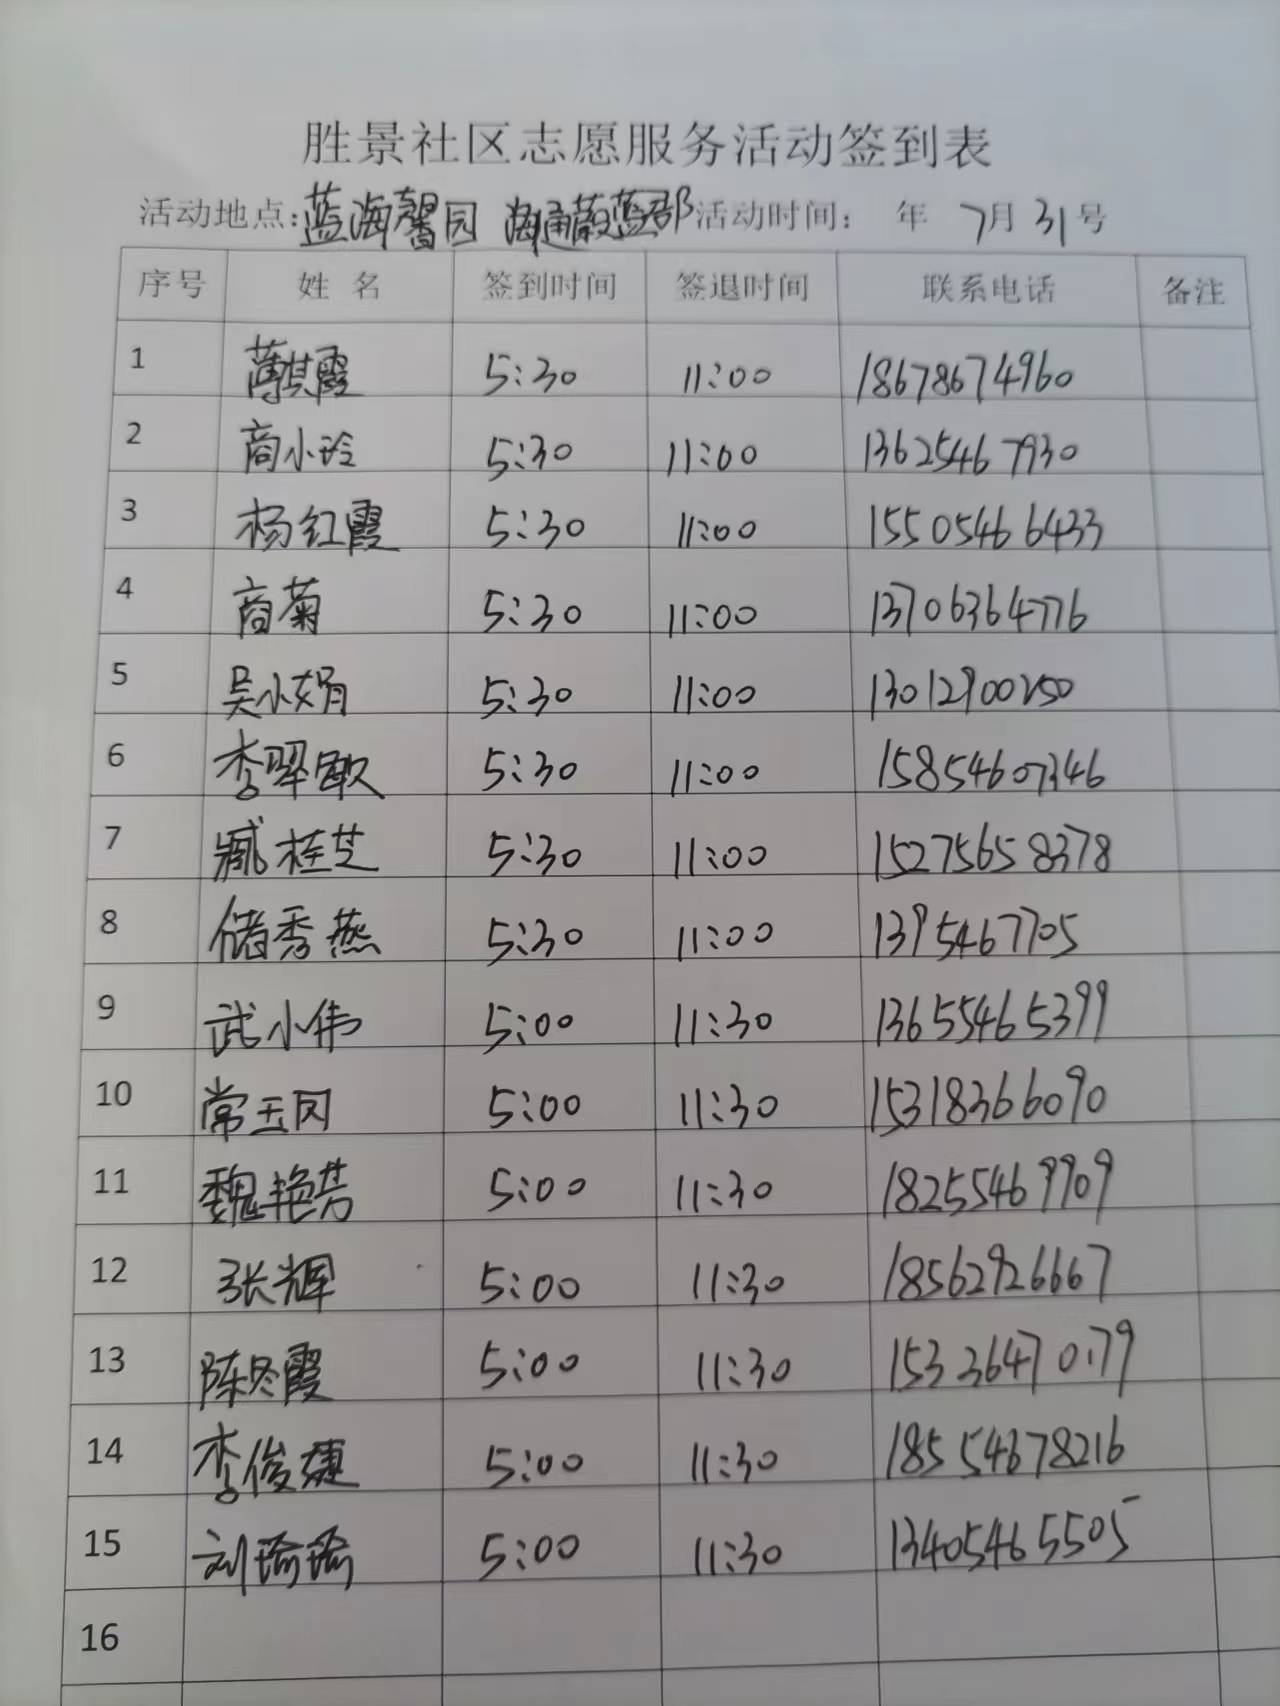 胜景社区志愿服务活动签到表
活动地点:蓝海馨园 海通蔚蓝郡 活动时间: 年 7月 31号
序号 姓名 签到时间 签退时间 联系电话 备注
1 薄其霞 5:30 11:00 18678674960
2 商小玲 5:30 11:00 13625467930
3 杨红霞 5:30 11:00 15505466433
4 商菊 5:30 11:00 13706364776
5 吴小娟 5:30 11:00 13012900250
6 李翠敏 5:30 11:00 15854607346
7 臧桂芝 5:30 11:00 15275658378
8 储秀燕 5:30 11:00 1395467705
9 武小伟 5:00 11:30 13655465399
10 常玉凤 5:00 11:30 15318366090
11 魏艳芳 5:00 11:30 18255469909
12 张辉 5:00 11:30 18562926667
13 陈冬霞 5:00 11:30 15336470179
14 李俊婕 5:00 11:30 18554678216
15 刘瑜瑜 5:00 11:30 13405465505
16